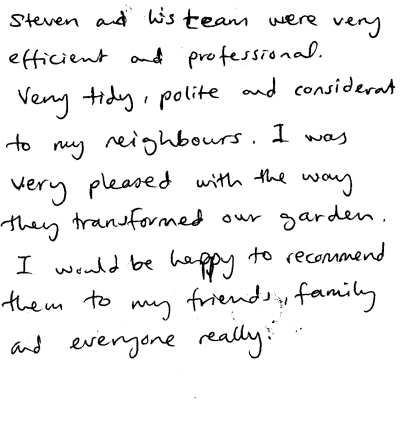 Steven and his team were very
efficient and professional.
Very tidy, polite and considerat
to my neighbours. I was
very pleased with the way
they transformed our garden.
I would be happy to recommend
them to my friends, family
and everyone really.